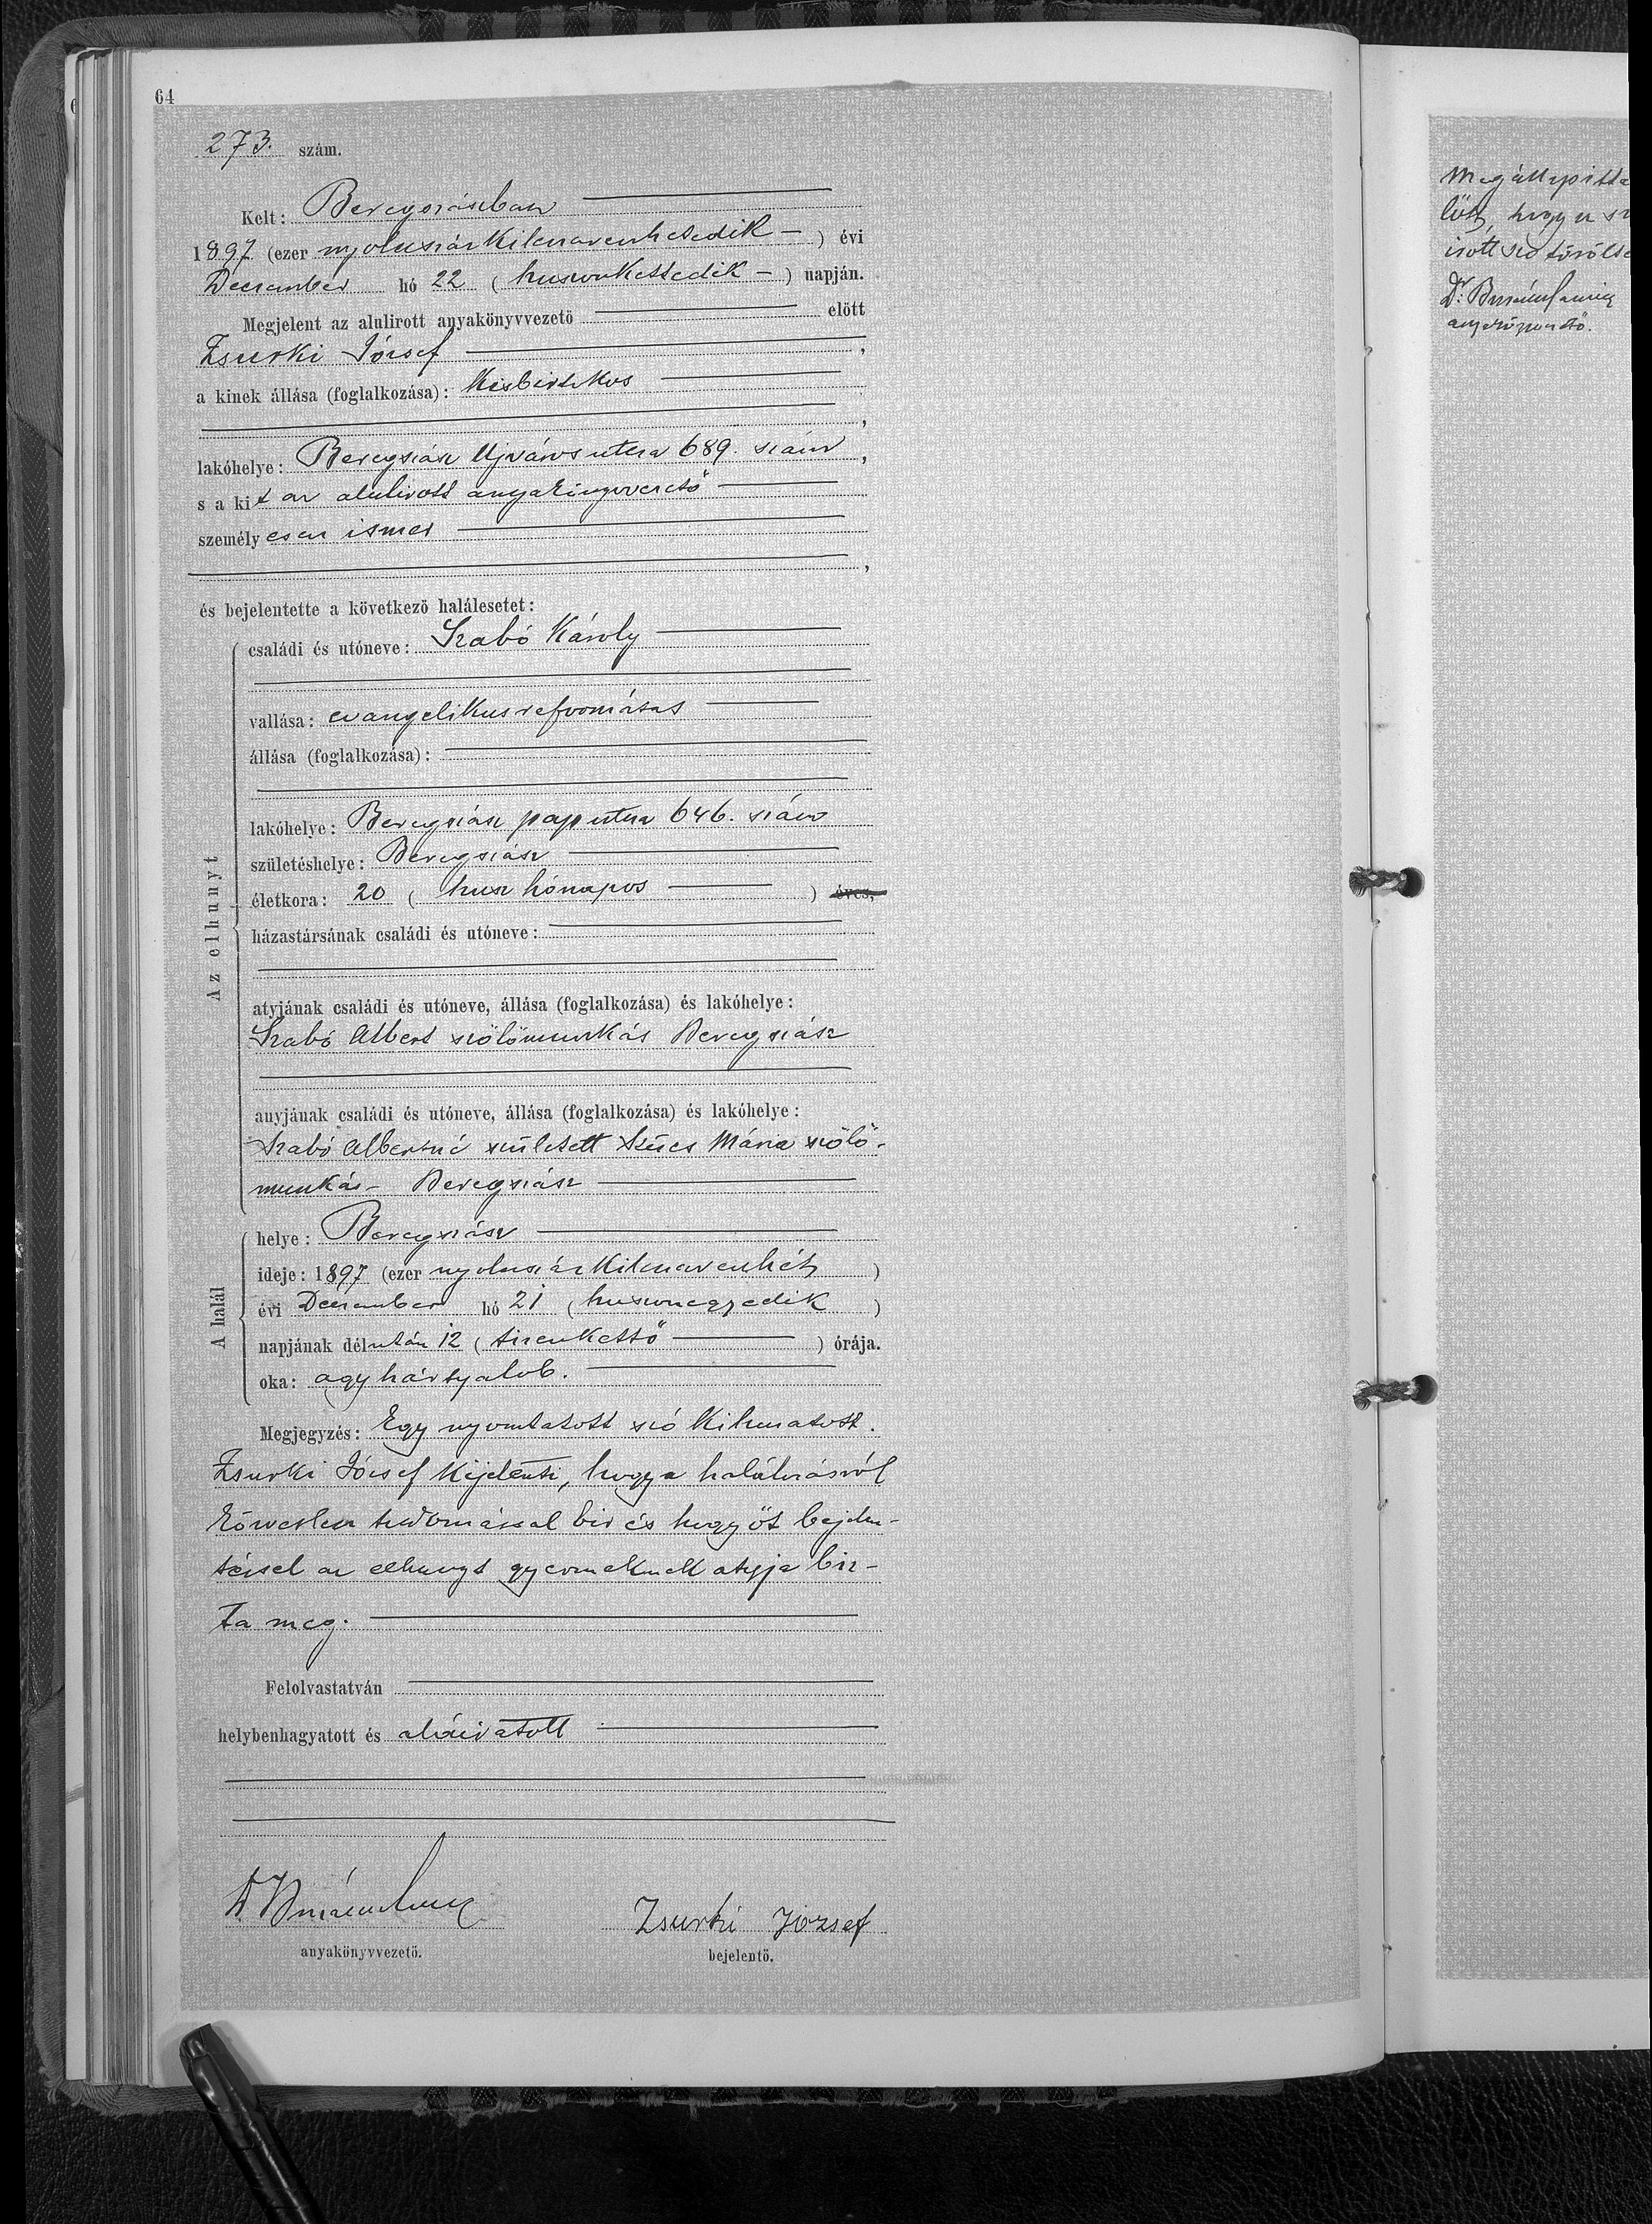 64
273. szám.
Kelt: Beregszászban
1897 (ezer nyolcszázkilencvenhetedik —) évi
December hó 22 (huszonkettedik —) napján.
Megjelent az alulirott anyakönyvvezető előtt
Zsurki József,
a kinek állása (foglalkozása): Kisbirtokos
,
lakóhelye: Beregszász Ujváros utca 689. szám,
s a kit az alulirott anyakönyvvezető
személyesen ismer
,
és bejelentette a következő halálesetet:
Az elhunyt
családi és utóneve: Szabó Károly
vallása: evangelikus református
állása (foglalkozása):
lakóhelye: Beregszász pap utca 646. szám
születéshelye: Beregszász
életkora: 20 (husz hónapos) éves,
házastársának családi és utóneve:
atyjának családi és utóneve, állása (foglalkozása) és lakóhelye:
Szabó Albert szőlőmunkás Beregszász
anyjának családi és utóneve, állása (foglalkozása) és lakóhelye:
Szabó Albertné született Szücs Mária szőlő-
munkás – Beregszász
A halál
helye: Beregszász
ideje: 1897 (ezer nyolcszázkilencvenhét)
évi December hó 21 (huszonegyedik)
napjának délután 12 (tizenkettő) órája.
oka: agyhártyalob.
Megjegyzés: Egy nyomtatott szó kihuzatott.
Zsurki József kijelenti, hogy a halálozásról
közvetlen tudomással bir és hogy őt bejelen-
téssel az elhunyt gyermeknek atyja biz-
ta meg.
Felolvastatván
helybenhagyatott és aláiratott
anyakönyvvezető.
Zsurki József
bejelentő.
Megállapitta
hogy a
irott szó törölt
Dr.